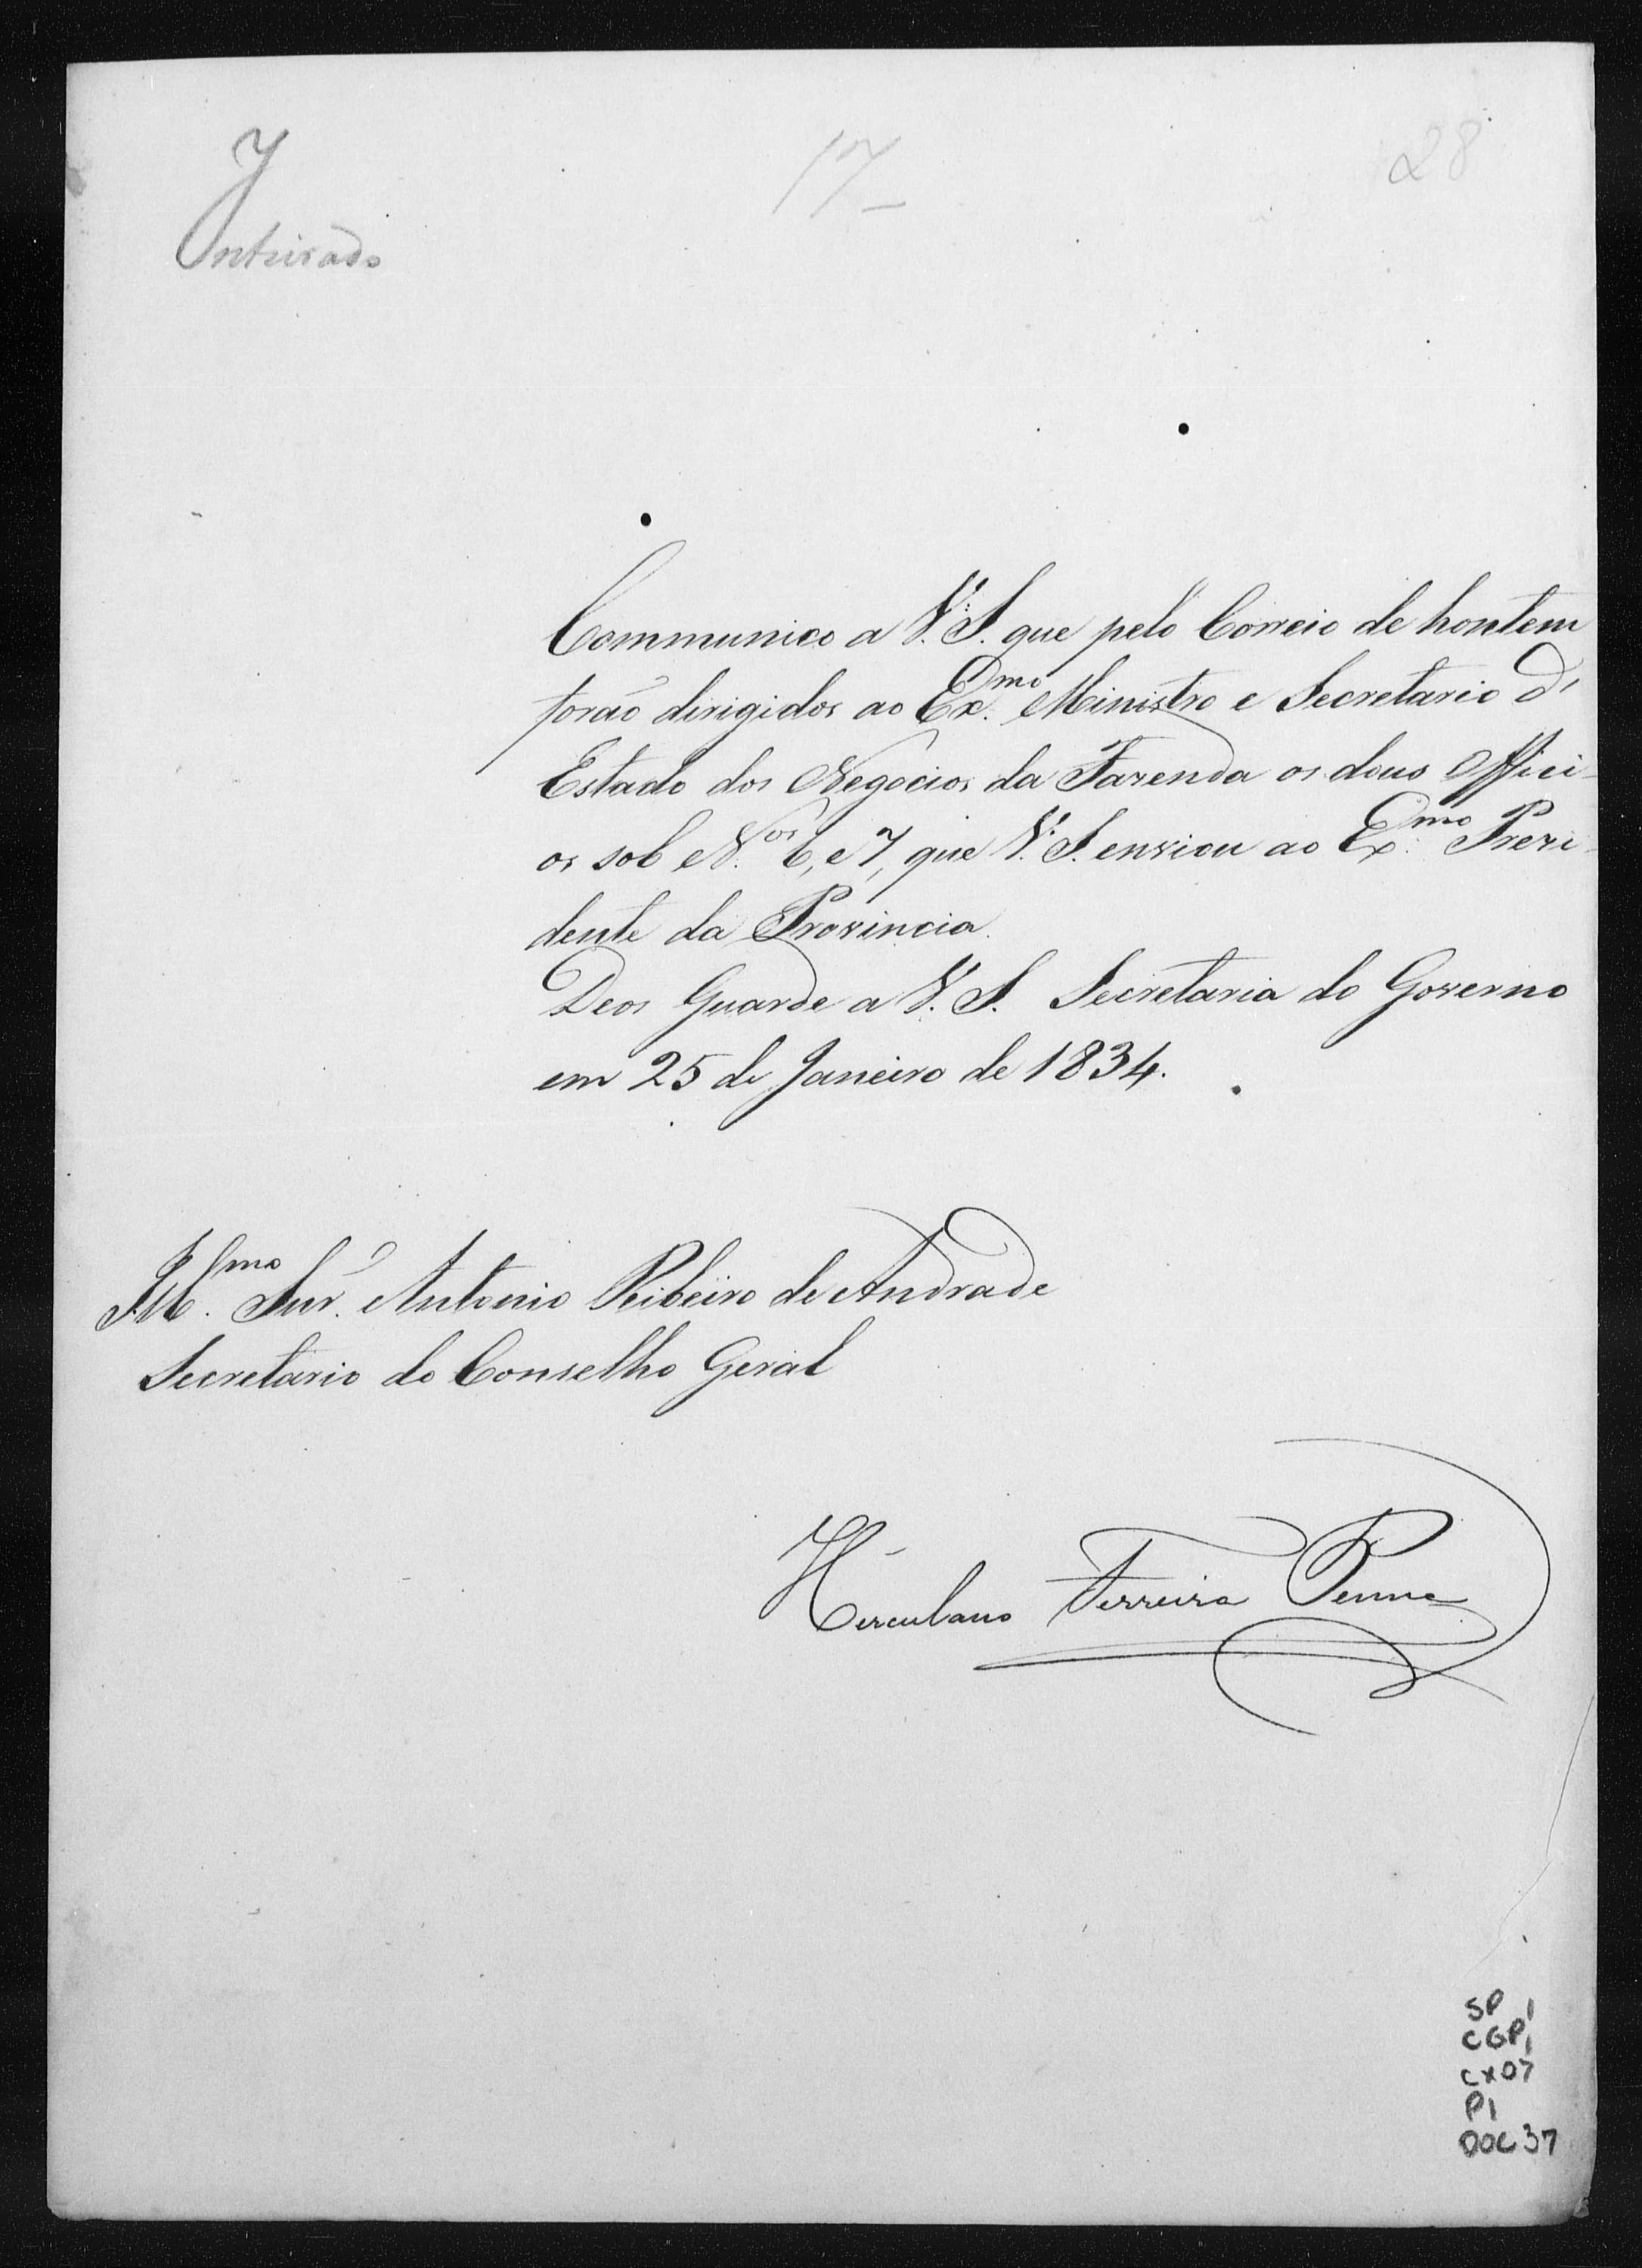 Inteirado
17
28
Communico a V. S. que pelo Correio de hontem
forão dirigidos ao Ex.mo Ministro e Secretario d'
Estado dos Negocios da Fazenda os dous Offici-
os sob N.os 6, e 7, que V. S. enviou ao Ex.mo Prezi-
dente da Provincia.
Deos Guarde a V. S. Secretaria do Governo
em 25 de Janeiro de 1834.
Ill.mo Snr. Antonio Ribeiro de Andrade
Secretario do Conselho Geral
Herculano Ferreira Penna
SP
CGP1
CX07
P1
DOC 37